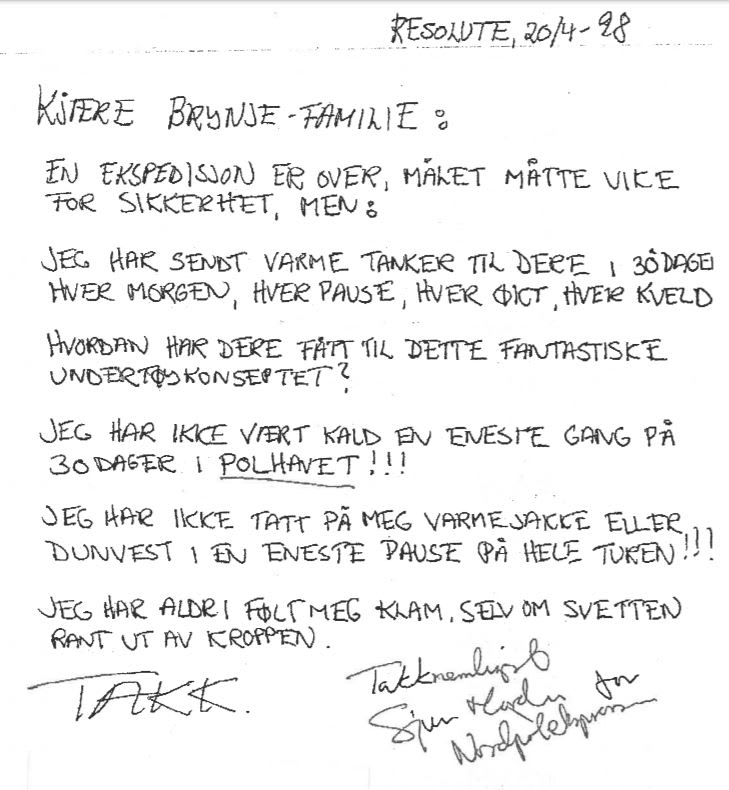 RESOLUTE, 20/4-98
KJÆRE BRYNJE-FAMILIE:
EN EKSPEDISJON ER OVER, MÅLET MÅTTE VIKE
FOR SIKKERHET, MEN:
JEG HAR SENDT VARME TANKER TIL DERE I 30 DAGER
HVER MORGEN, HVER PAUSE, HVER ØKT, HVER KVELD
HVORDAN HAR DERE FÅTT TIL DETTE FANTASTISKE
UNDERTØYKONSEPTET?
JEG HAR IKKE VÆRT KALD EN ENESTE GANG PÅ
30 DAGER I POLHAVET!!!
JEG HAR IKKE TATT PÅ MEG VARMEJAKKE ELLER
DUNVEST I EN ENESTE PAUSE PÅ HELE TUREN!!!
JEG HAR ALDRI FØLT MEG KLAM, SELV OM SVETTEN
RANT UT AV KROPPEN.
TAKK.
Takknemligst
for